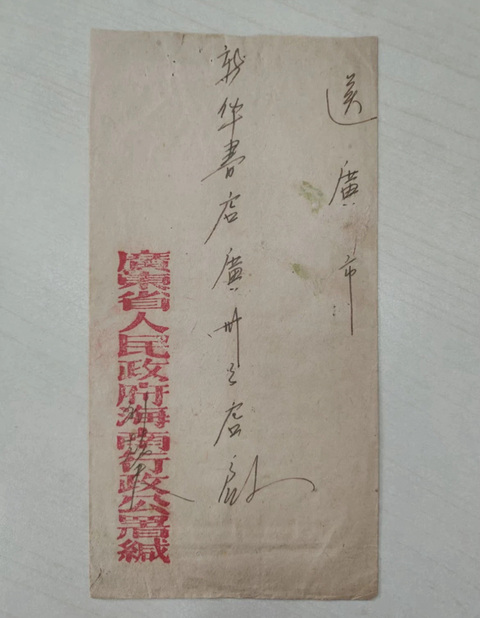 送 廣市
新华書店廣州分店啟
廣東省人民政府海南行政公署緘